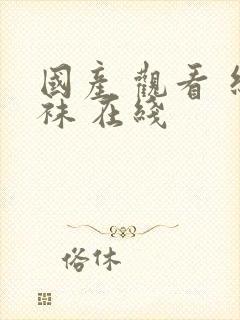 國產 觀看
袜 在綫
俗休